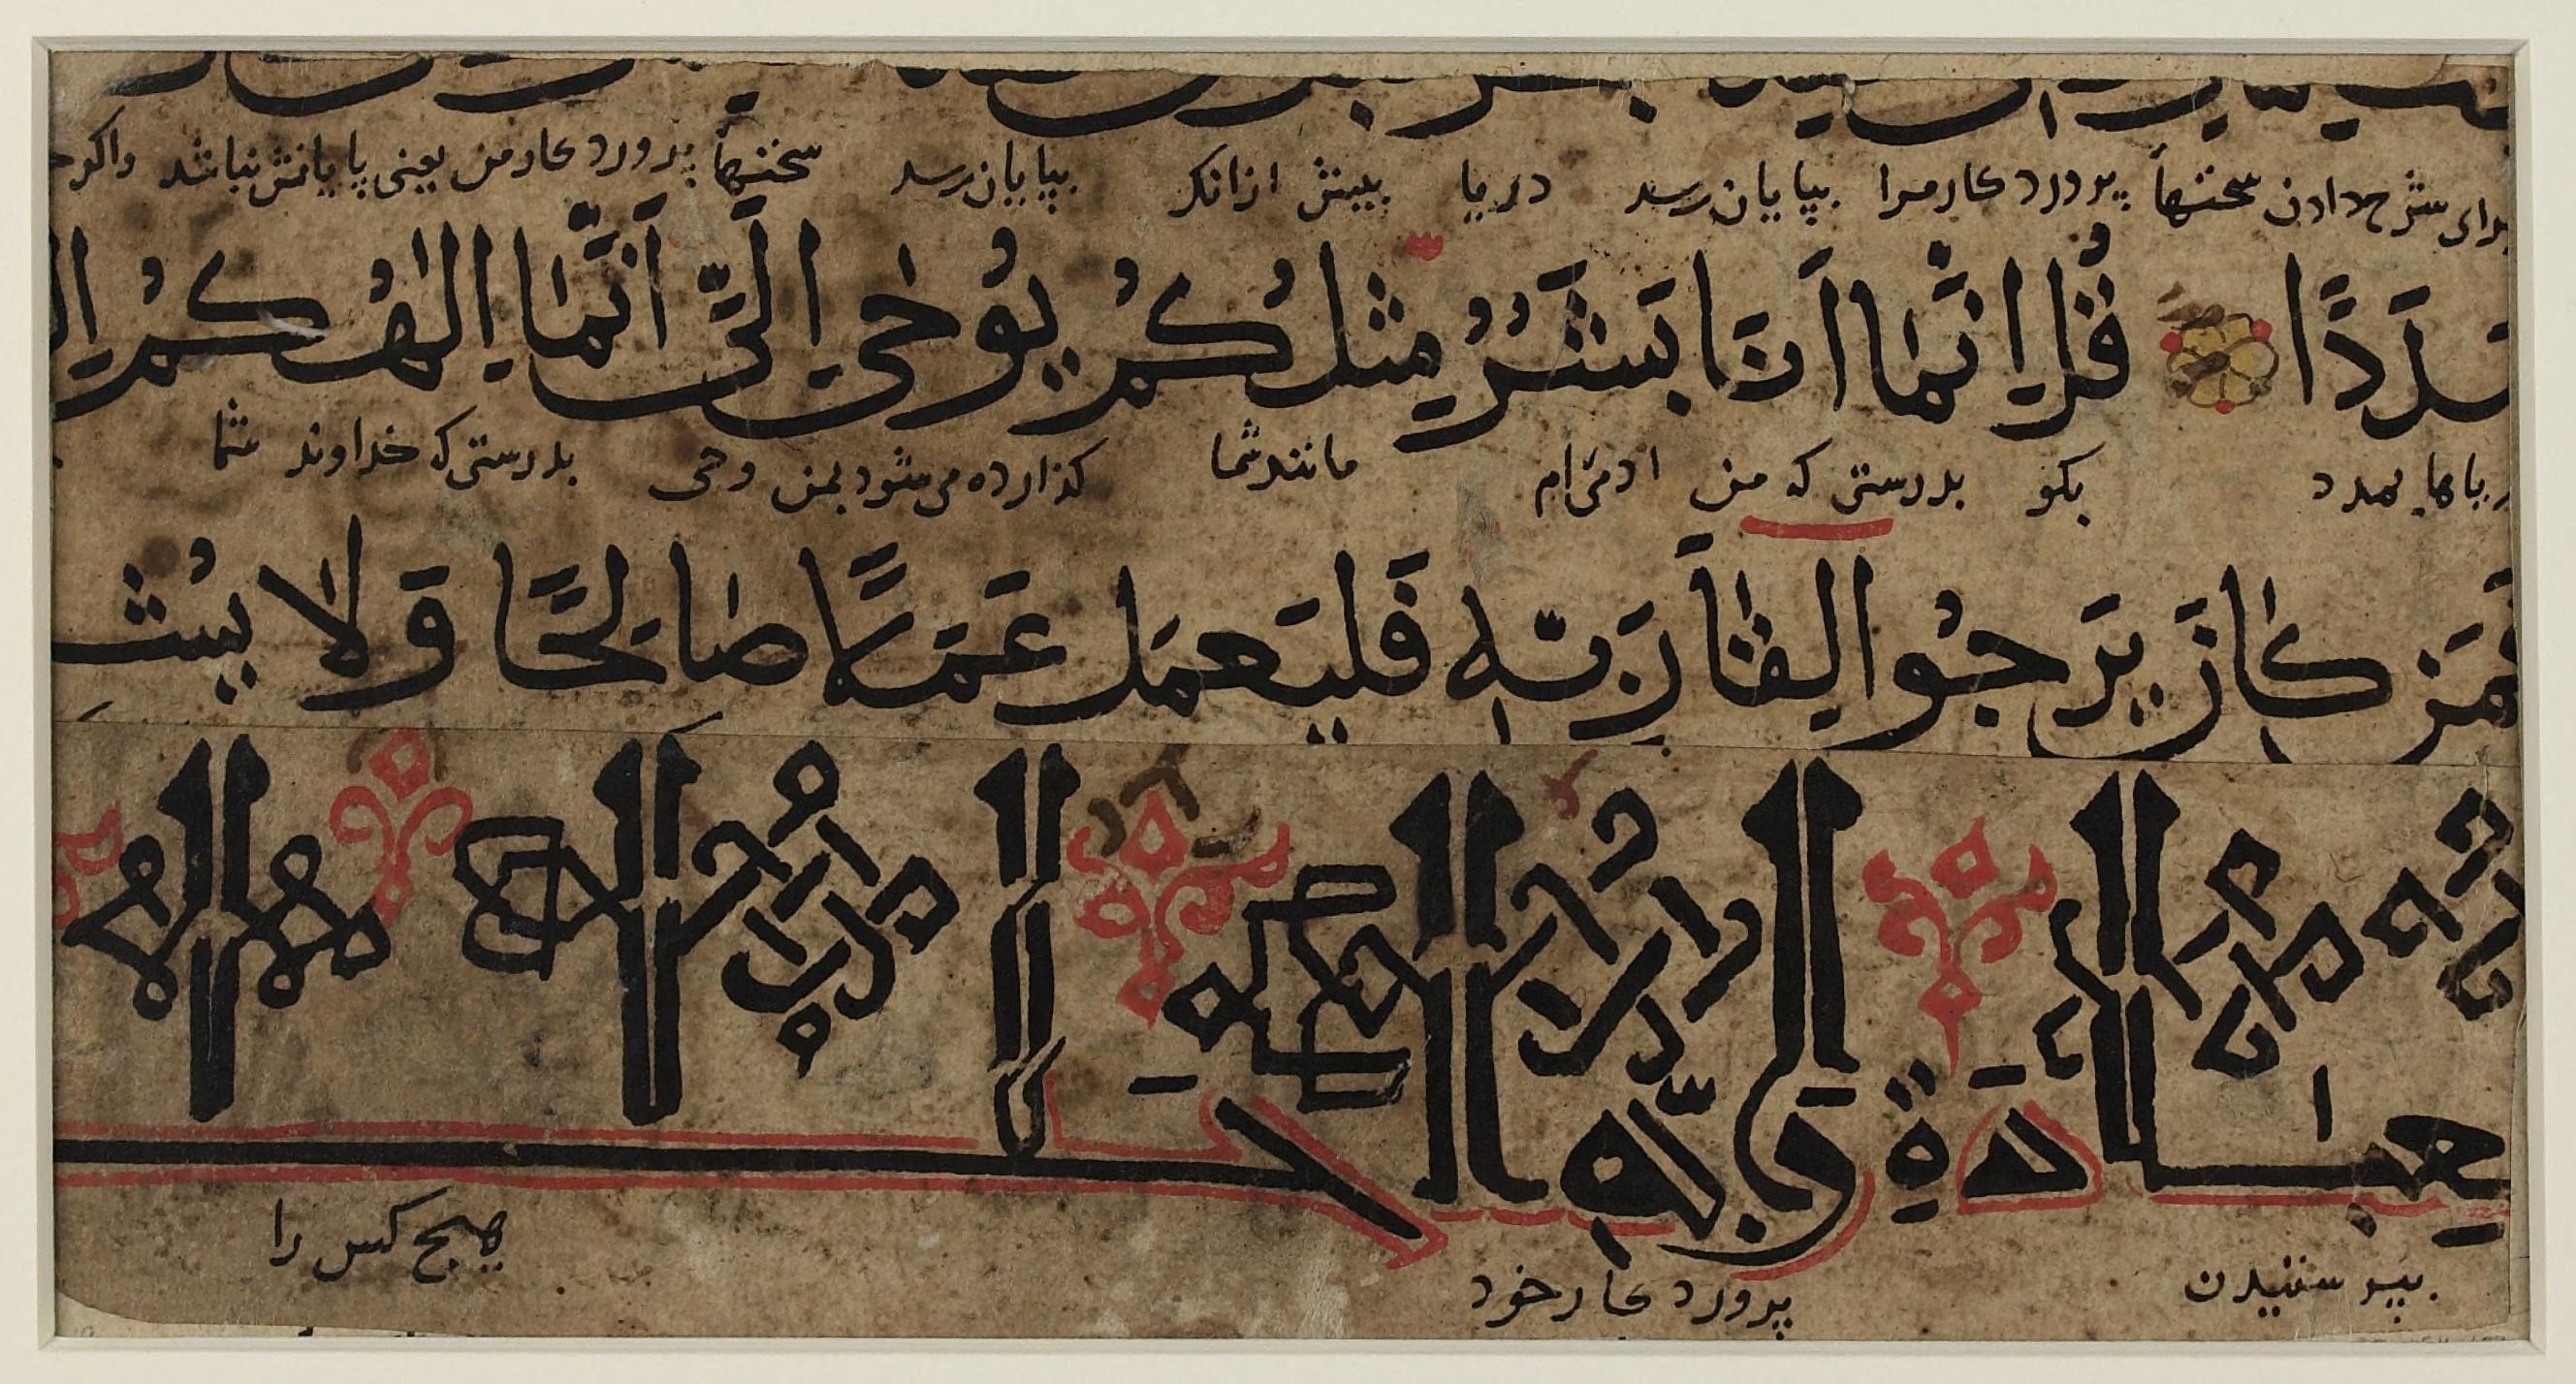 برای شرح دادن سخنهاٴ پروردکار مرا بپایان رسد دریا پیش ازانکه بپایان رسد سخنهاٴ پروردکار من یعنی پایانش نباشد واکر
مَدَدًا قُل اِنَّمٰا اَنَا بَشَرٌ مِثلُكُم يُوحٰي اِلَيَّ اَنَّمٰا اِلٰهُكُم اِلٰه
دریاها بمدد بکو بدرستی که من ادمی‌ام مانند شما کذارده می‌شود بمن وحی بدرستی که خداوند شما
فَمَن كٰانَ يَرجُوا لِقٰاۤءَ رَبِّهٖ فَليَعمَل عَمَلًا صٰالِحًا وَلٰا يُشـ
بِعِبٰادَةِ رَبِّهٖ اَحَدًا
بپرستیدن پروردکار خود هیچ کس را